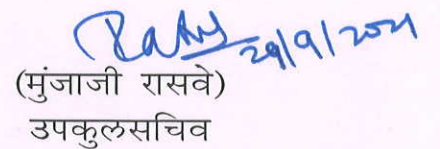 29/9/2021
(मुंजाजी रासवे)
उपकुलसचिव